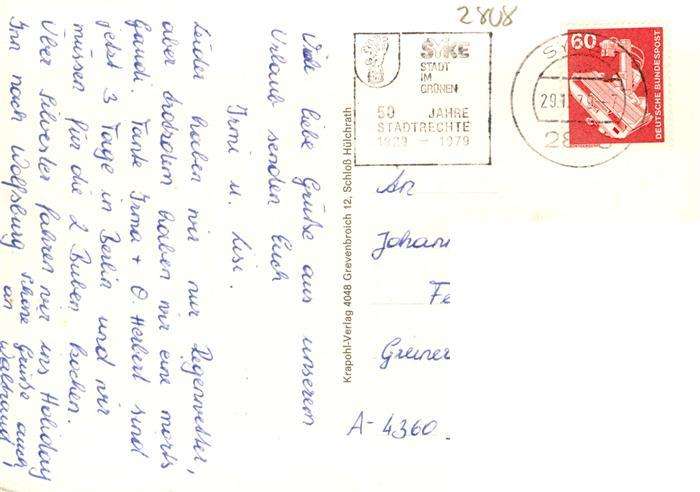 Viele liebe Grüße aus unserem
Urlaub senden Euch
Irmi u. Lisi.
Leider haben wir nur Regenwetter,
aber trotzdem haben wir eine morts
Gaudi. Tante Irma + O. Herbert sind
jetzt 3 Tage in Berlin und wir
müssen für die 2 Buben kochen.
Über Silvester fahren wir ins Holiday
Inn nach Wolfsburg
Schöne Grüße auch
an Waltraud!
Krapohl-Verlag 4048 Grevenbroich 12, Schloß Hülchrath
2808
SYKE
STADT
IM
GRÜNEN
50 JAHRE
STADTRECHTE
1929 - 1979
60
DEUTSCHE BUNDESPOST
An
Johann
Fe
Greiner
A-4360.